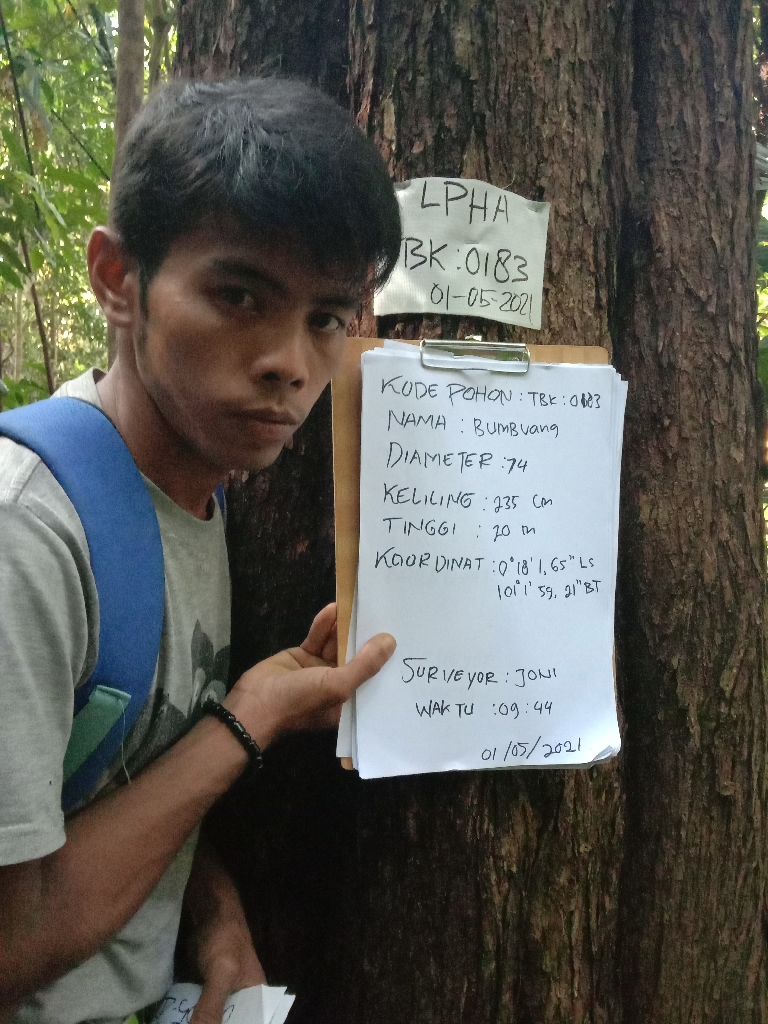 LPHA
TBK:0183
01-05-2021
KODE POHON : TBK:0183
NAMA : BUMBUang
DIAMETER : 74
KELILING : 235 Cm
TINGGI : 20 m
KOORDINAT : 0°18'1,65" LS
101°1'59,21" BT
SURVEYOR : JONI
WAKTU : 09:44
01/05/2021